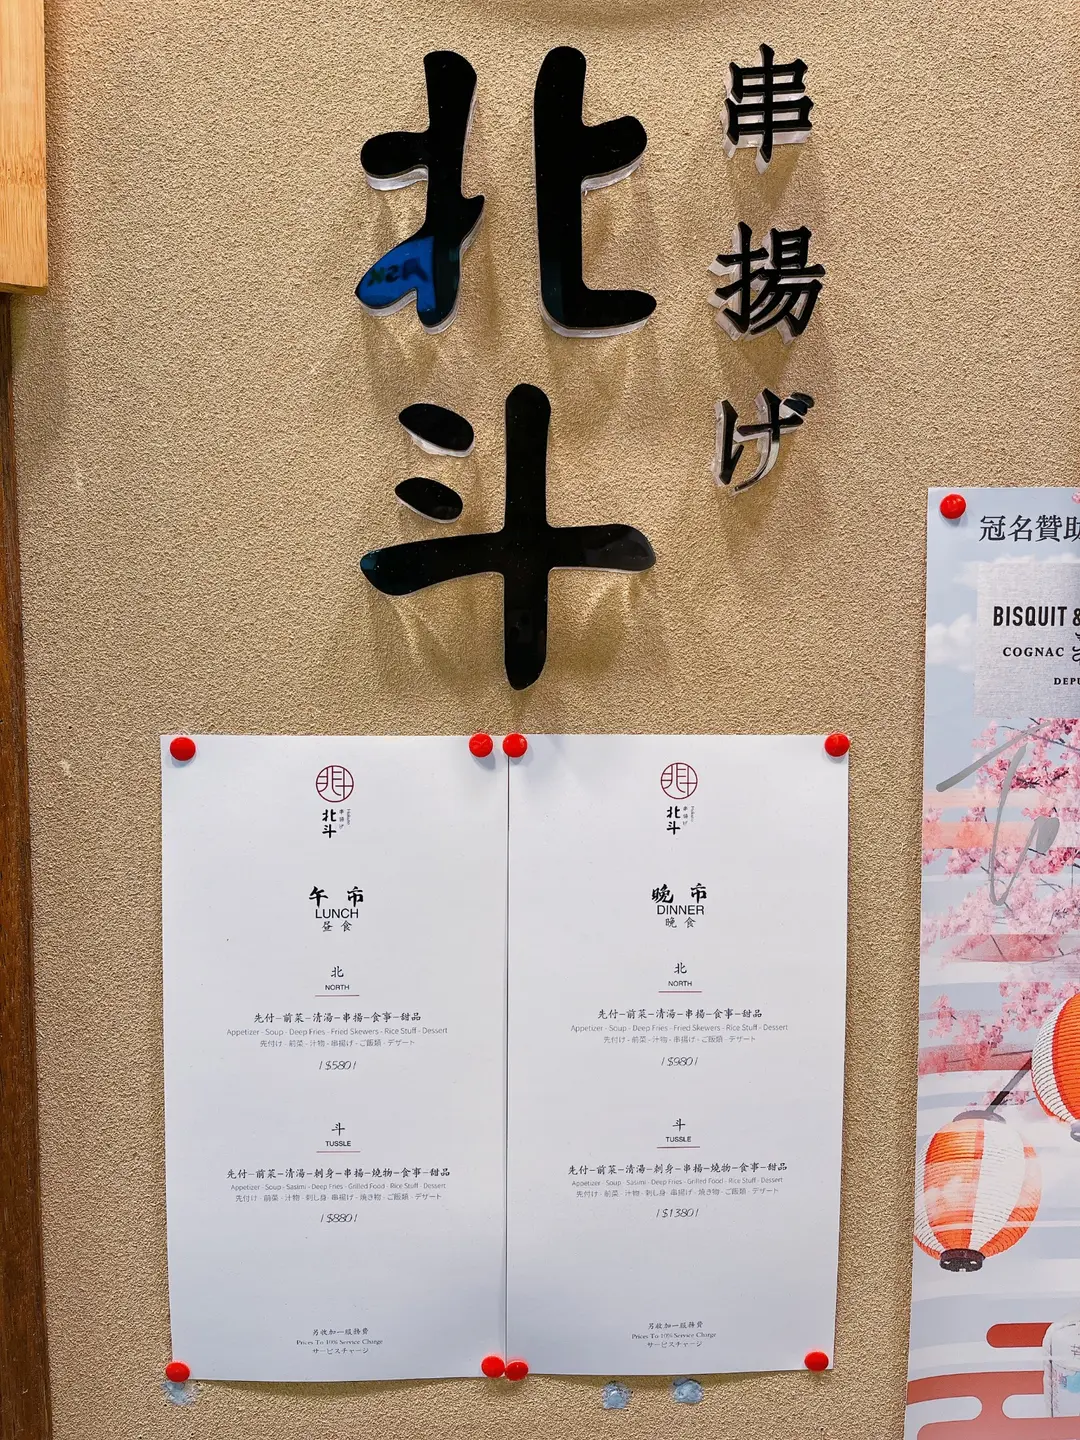 串揚げ
北斗
冠名贊助
BISQUIT &
COGNAC
DEPU
北斗
串揚げ
午市
LUNCH
昼食
北
NORTH
先付–前菜–清湯–串揚–食事–甜品
Appetizer - Soup - Deep Fries - Fried Skewers - Rice Stuff - Dessert
先付け - 前菜 - 汁物 - 串揚げ - ご飯類 - デザート
/ $580 /
斗
TUSSLE
先付–前菜–清湯–刺身–串揚–燒物–食事–甜品
Appetizer - Soup - Sasimi - Deep Fries - Grilled Food - Rice Stuff - Dessert
先付け - 前菜 - 汁物 - 刺し身 - 串揚げ - 焼き物 - ご飯類 - デザート
/ $880 /
另收加一服務費
Prices To 10% Service Charge
サービスチャージ
北斗
串揚げ
晚市
DINNER
晩食
北
NORTH
先付–前菜–清湯–串揚–食事–甜品
Appetizer - Soup - Deep Fries - Fried Skewers - Rice Stuff - Dessert
先付け - 前菜 - 汁物 - 串揚げ - ご飯類 - デザート
/ $980 /
斗
TUSSLE
先付–前菜–清湯–刺身–串揚–燒物–食事–甜品
Appetizer - Soup - Sasimi - Deep Fries - Grilled Food - Rice Stuff - Dessert
先付け - 前菜 - 汁物 - 刺し身 - 串揚げ - 焼き物 - ご飯類 - デザート
/ $1380 /
另收加一服務費
Prices To 10% Service Charge
サービスチャージ